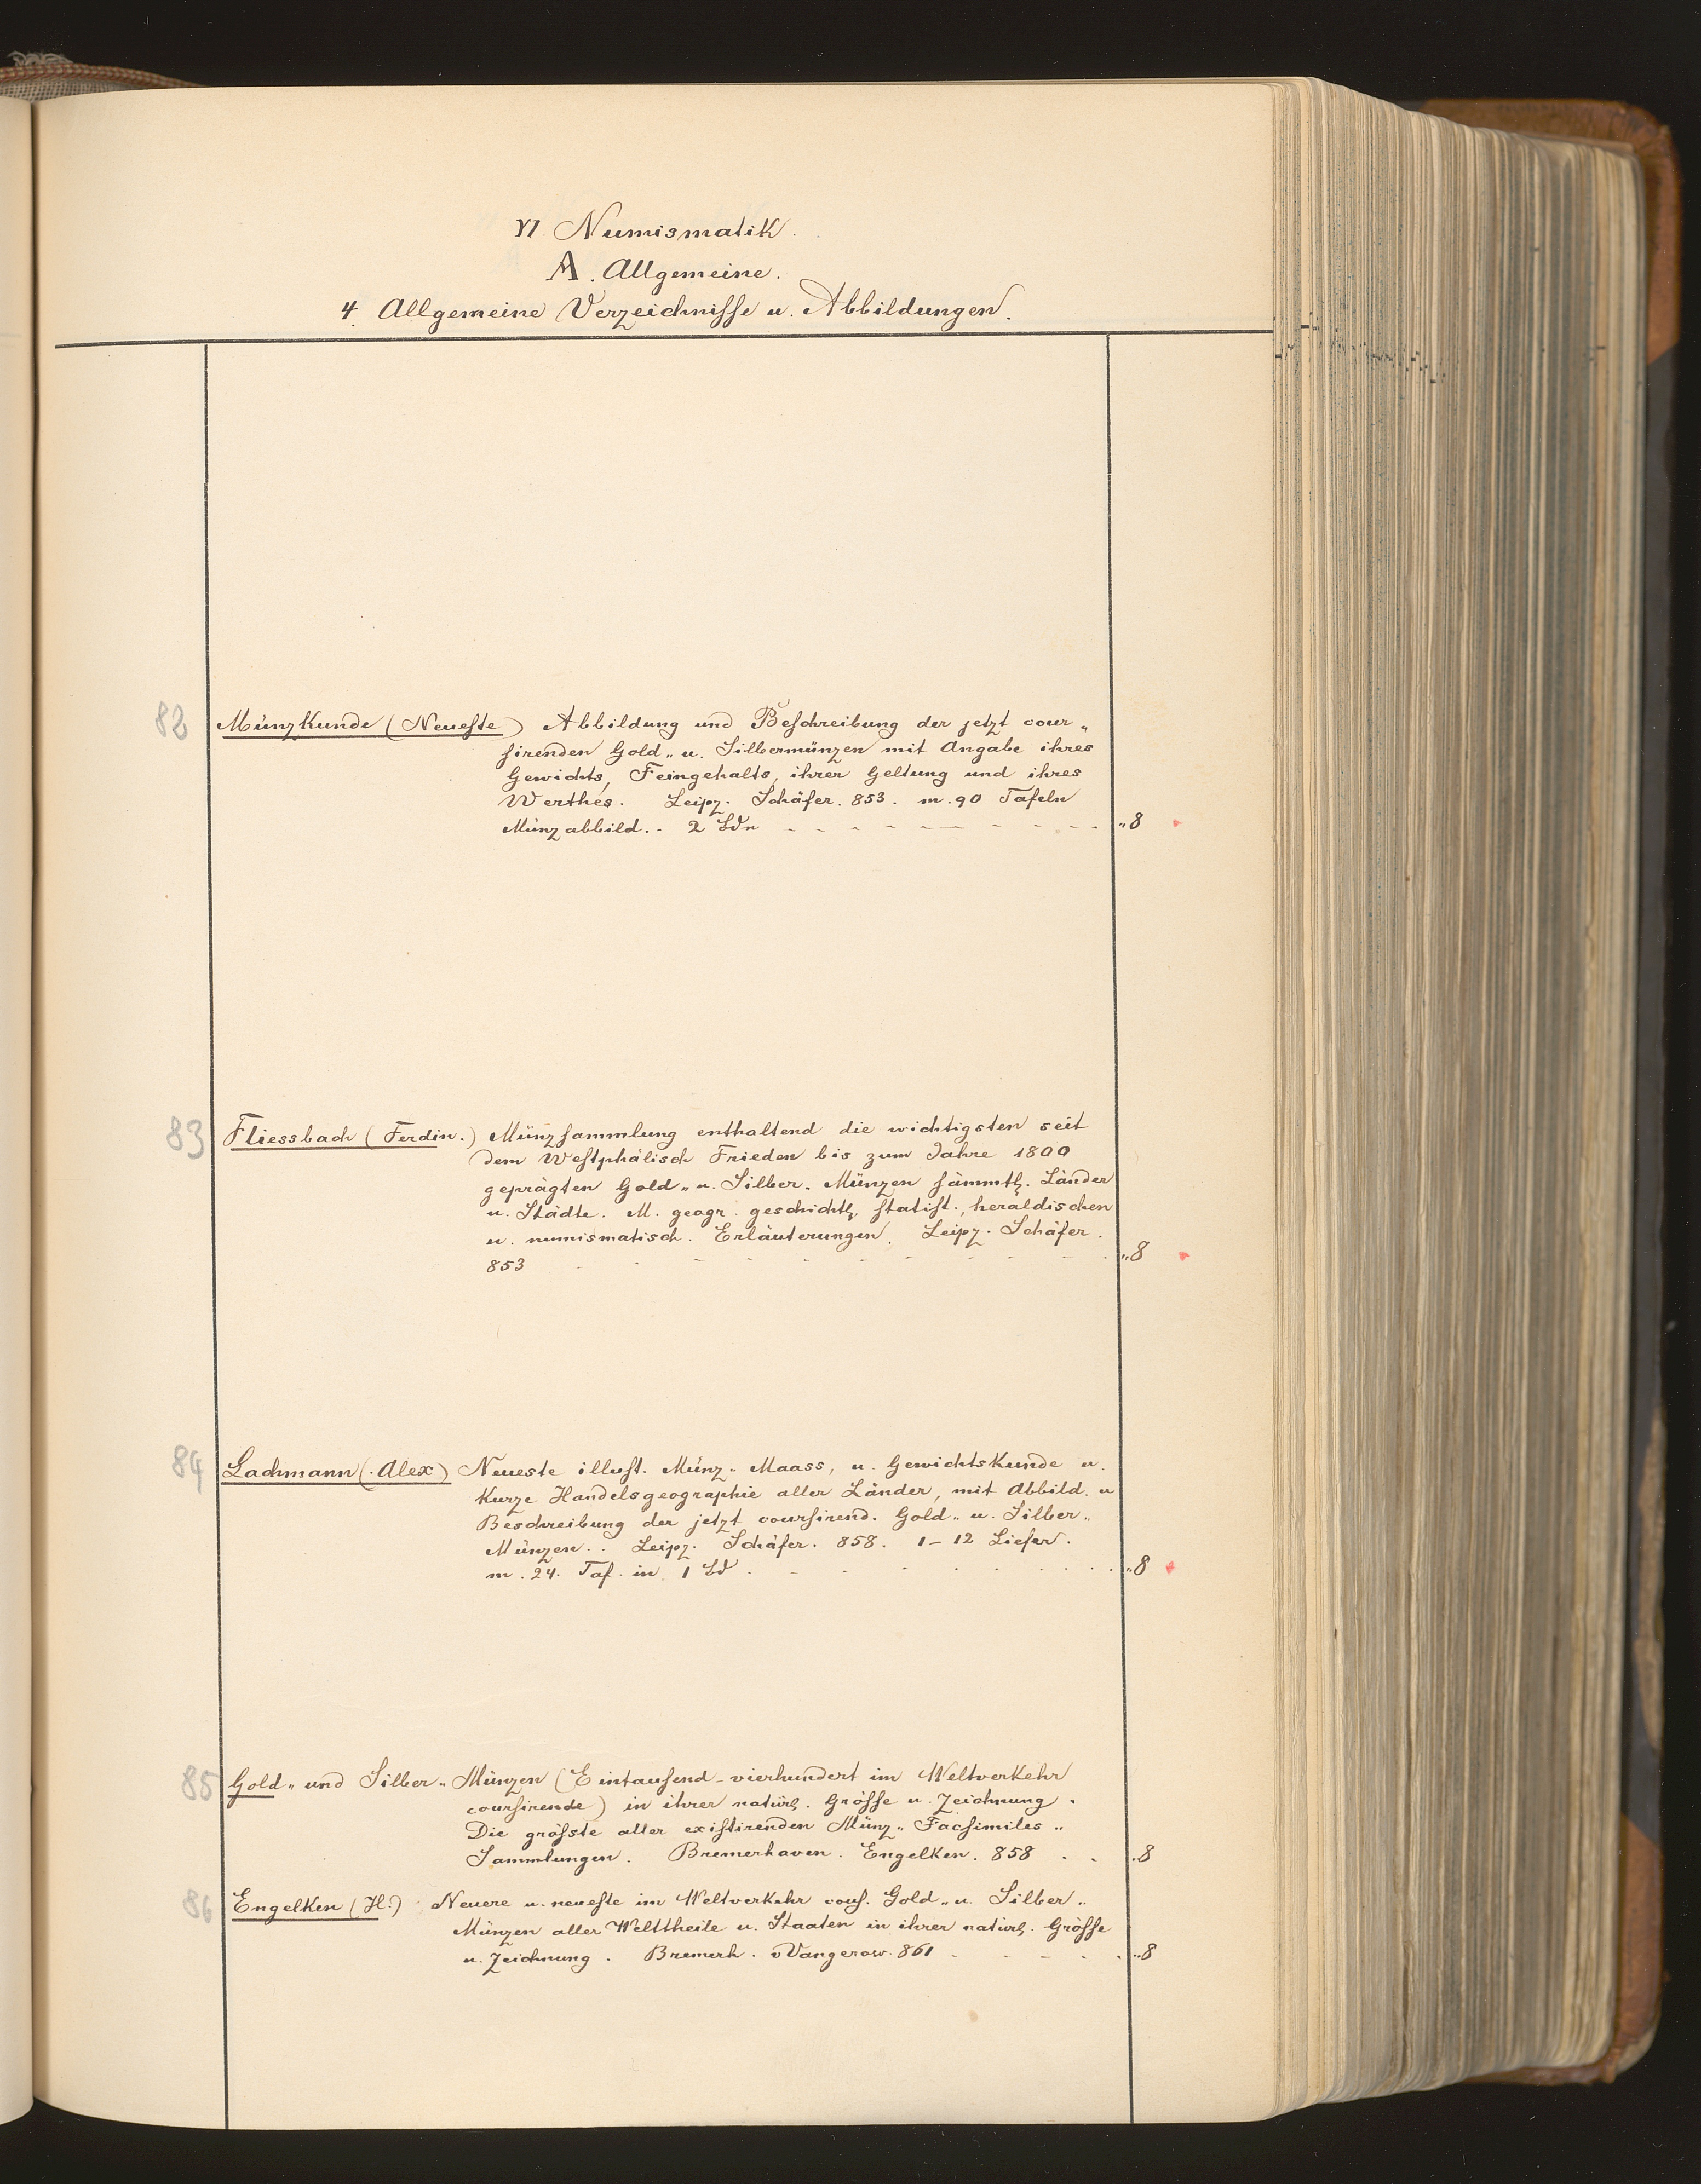 VI. Numismatik.
A. Allgemeine.
4. Allgemeine Verzeichnisse u. Abbildungen.
82 Münzkunde (Neueste) Abbildung und Beschreibung der jetzt cour„
sirenden Gold„ u. Silbermünzen mit Angabe ihres
Gewichts, Feingehalts, ihrer Geltung und ihres
Werthes. Leipz. Schäfer. 853. m. 90 Tafeln
Münzabbild. - 2 Bdn „8
83 Fliessbach (Ferdin.) Münzsammlung enthaltend die wichtigsten seit
dem Westphälisch Frieden bis zum Jahre 1800
geprägten Gold„ u. Silber. Münzen sämmtl. Länder
u. Städte. M. geogr. geschichtl, statist., heraldischen
u. numismatisch. Erläuterungen. Leipz. Schäfer.
853 „8
84 Lachmann (Alex) Neueste illust. Münz- Maass, u. Gewichtskunde u.
Kurze Handelsgeographie aller Länder, mit Abbild. u
Beschreibung der jetzt coursirend. Gold„ u. Silber„
Münzen.. Leipz. Schäfer. 858. 1-12 Liefer.
m. 24. Taf. in 1 Bd „8
85 Gold„ und Silber„ Münzen (Eintausend-vierhundert im Weltverkehr
coursirende) in ihrer natürl. Grösse u. Zeichnung.
Die grösste aller existirenden Münz„ Facsimiles„
Sammlungen. Bremerhaven. Engelken. 858 . . .8
86 Engelken (H.) Neuere u. neueste im Weltverkehr cous. Gold„ u. Silber„
Münzen aller Welttheile u. Staaten in ihrer natürl. Grösse
u. Zeichnung. Bremerh. v Vangerow. 861 „8